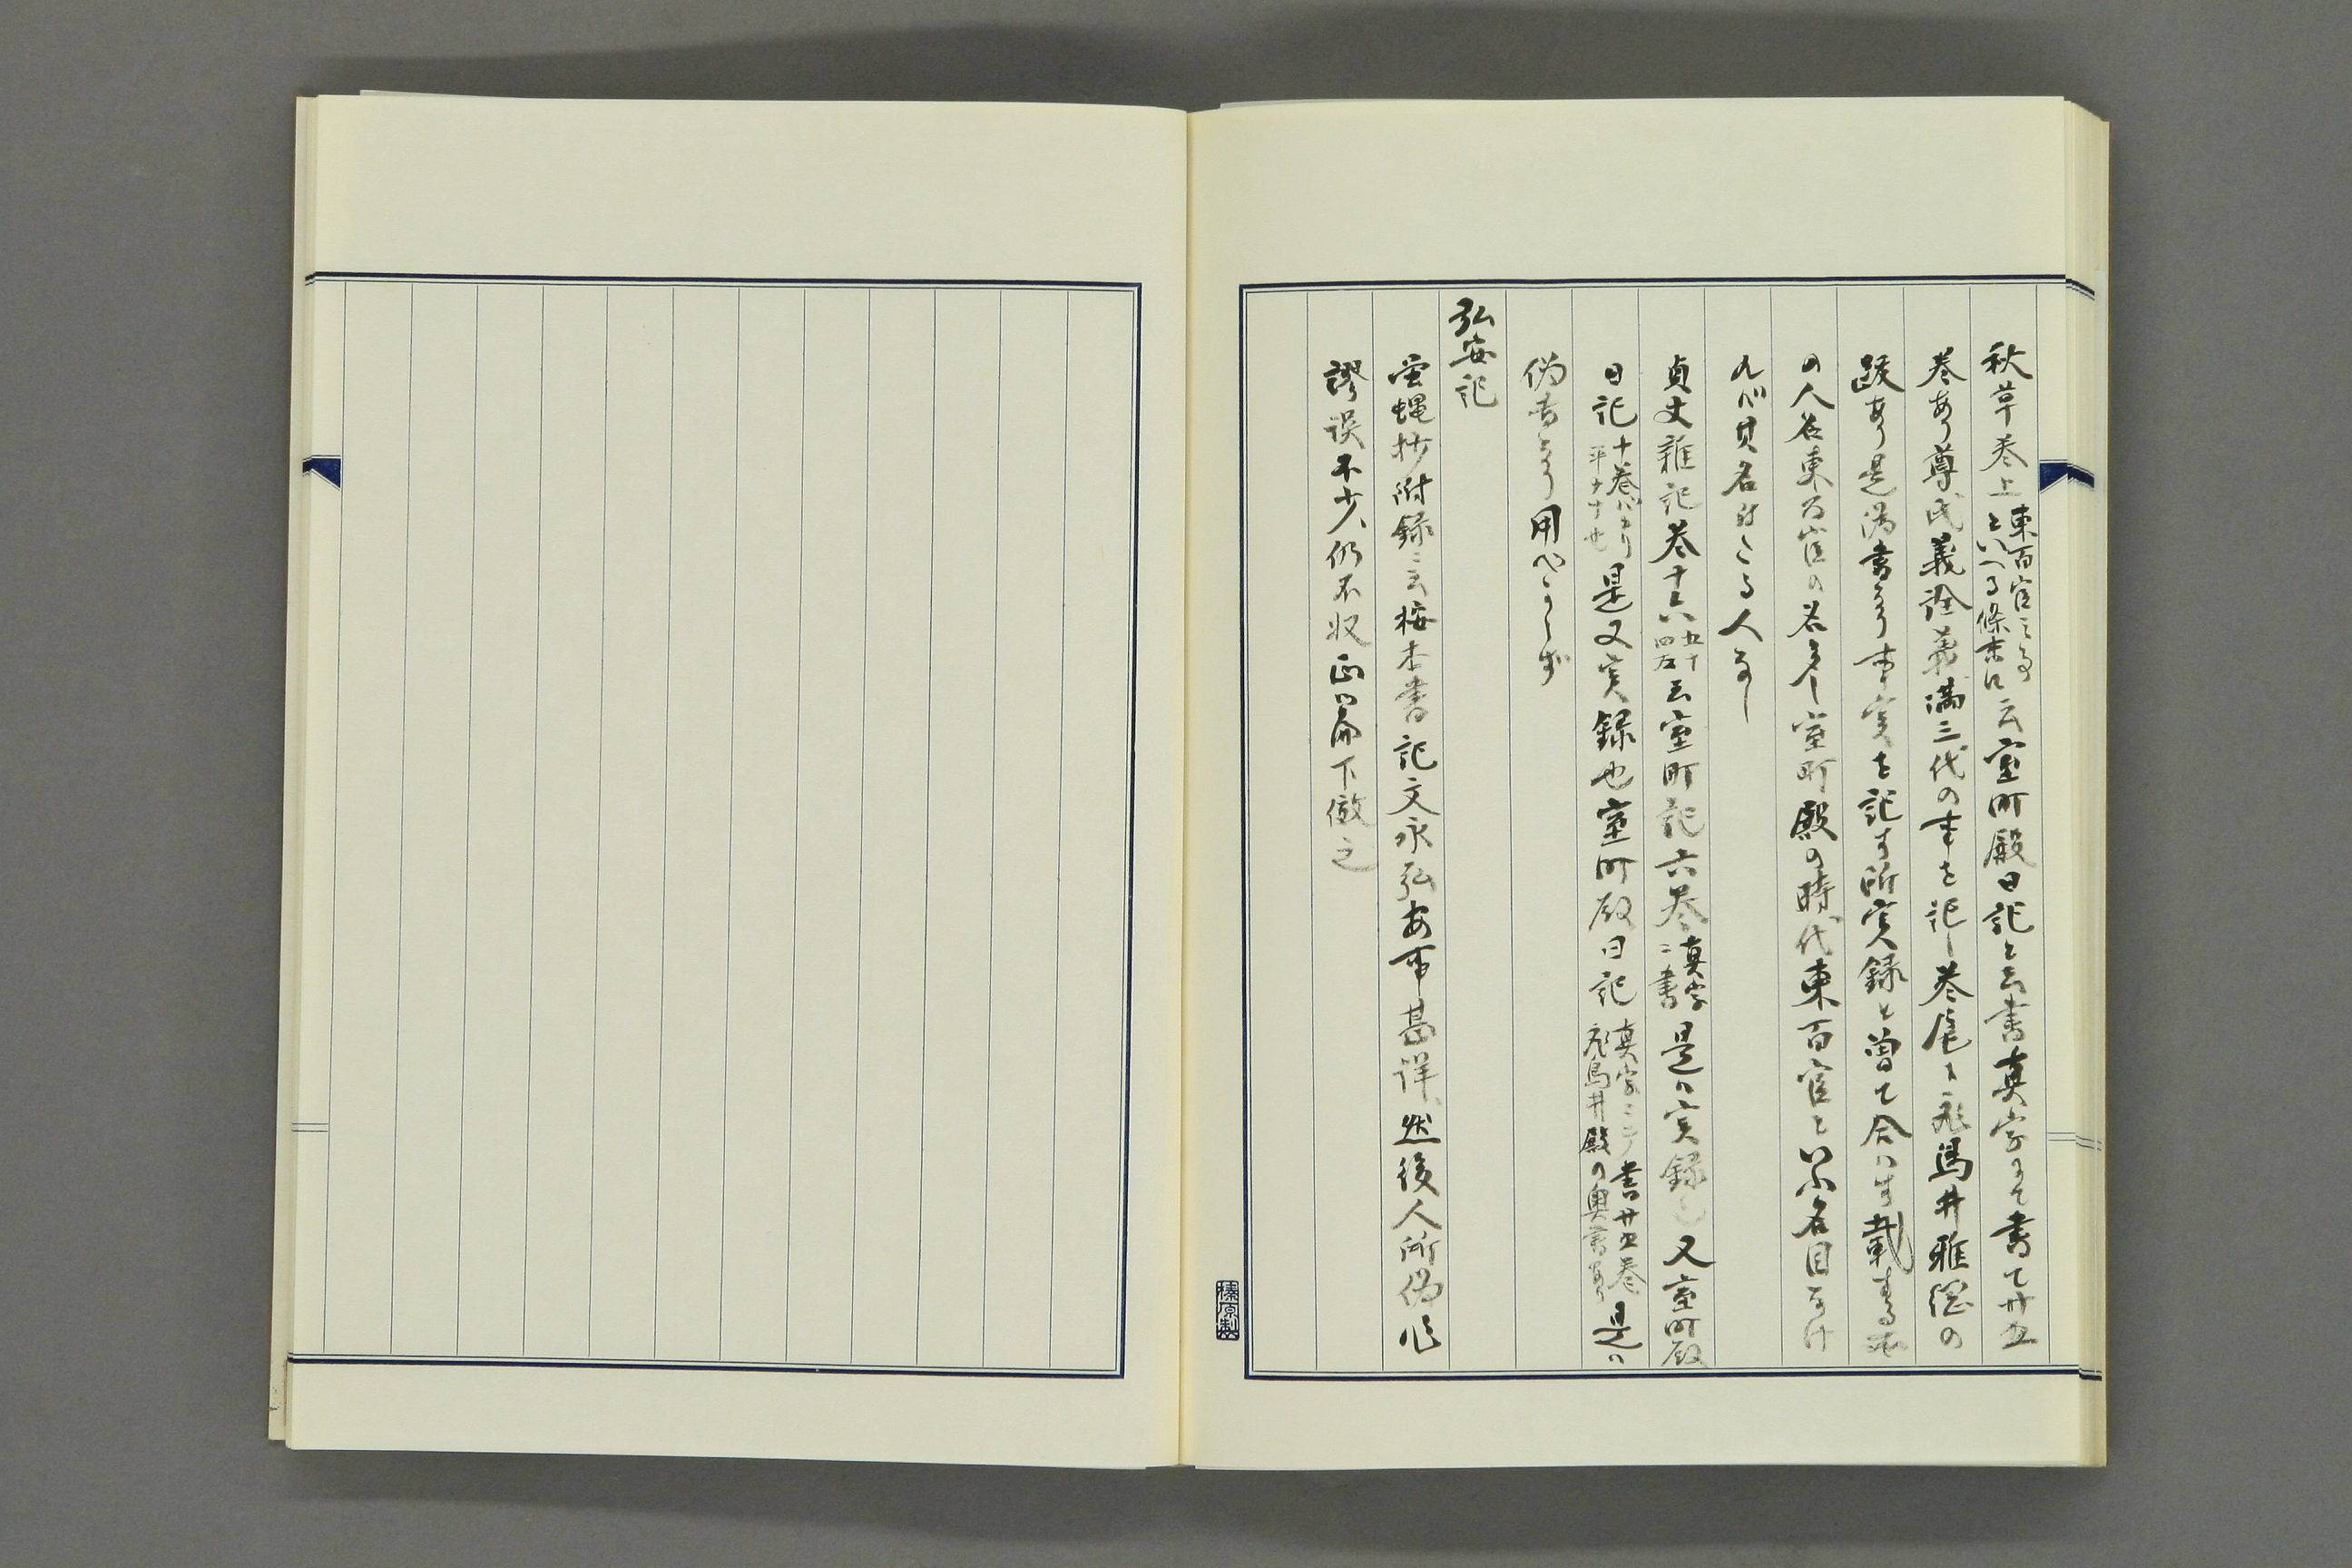 秋草巻上東百官之事といへる條末に云室町殿日記と云書真字にて書て廿五
巻あり尊氏義詮義満三代の事を記し巻尾に飛鳥井雅縄の
跋あり是偽書なり事実を記す所実録と曽て合はす載する所
の人名東百官の名多し室町殿の時代東百官といふ名目なけ
れバ其名付たる人なし
貞丈雑記巻十六五十四左云室町記六巻真字ニ書是ハ実録也又室町殿
日記十巻バかり平カナ也是又実録也室町殿日記真字ニテ書廿五巻飛鳥井殿の奥書あり是ハ
偽書なり用べからず
弘安記
蛍蝿抄附録ニ云按本書記文永弘安事甚詳、然後人所偽作
謬誤不少、仍不収正篇下倣之
榛原製